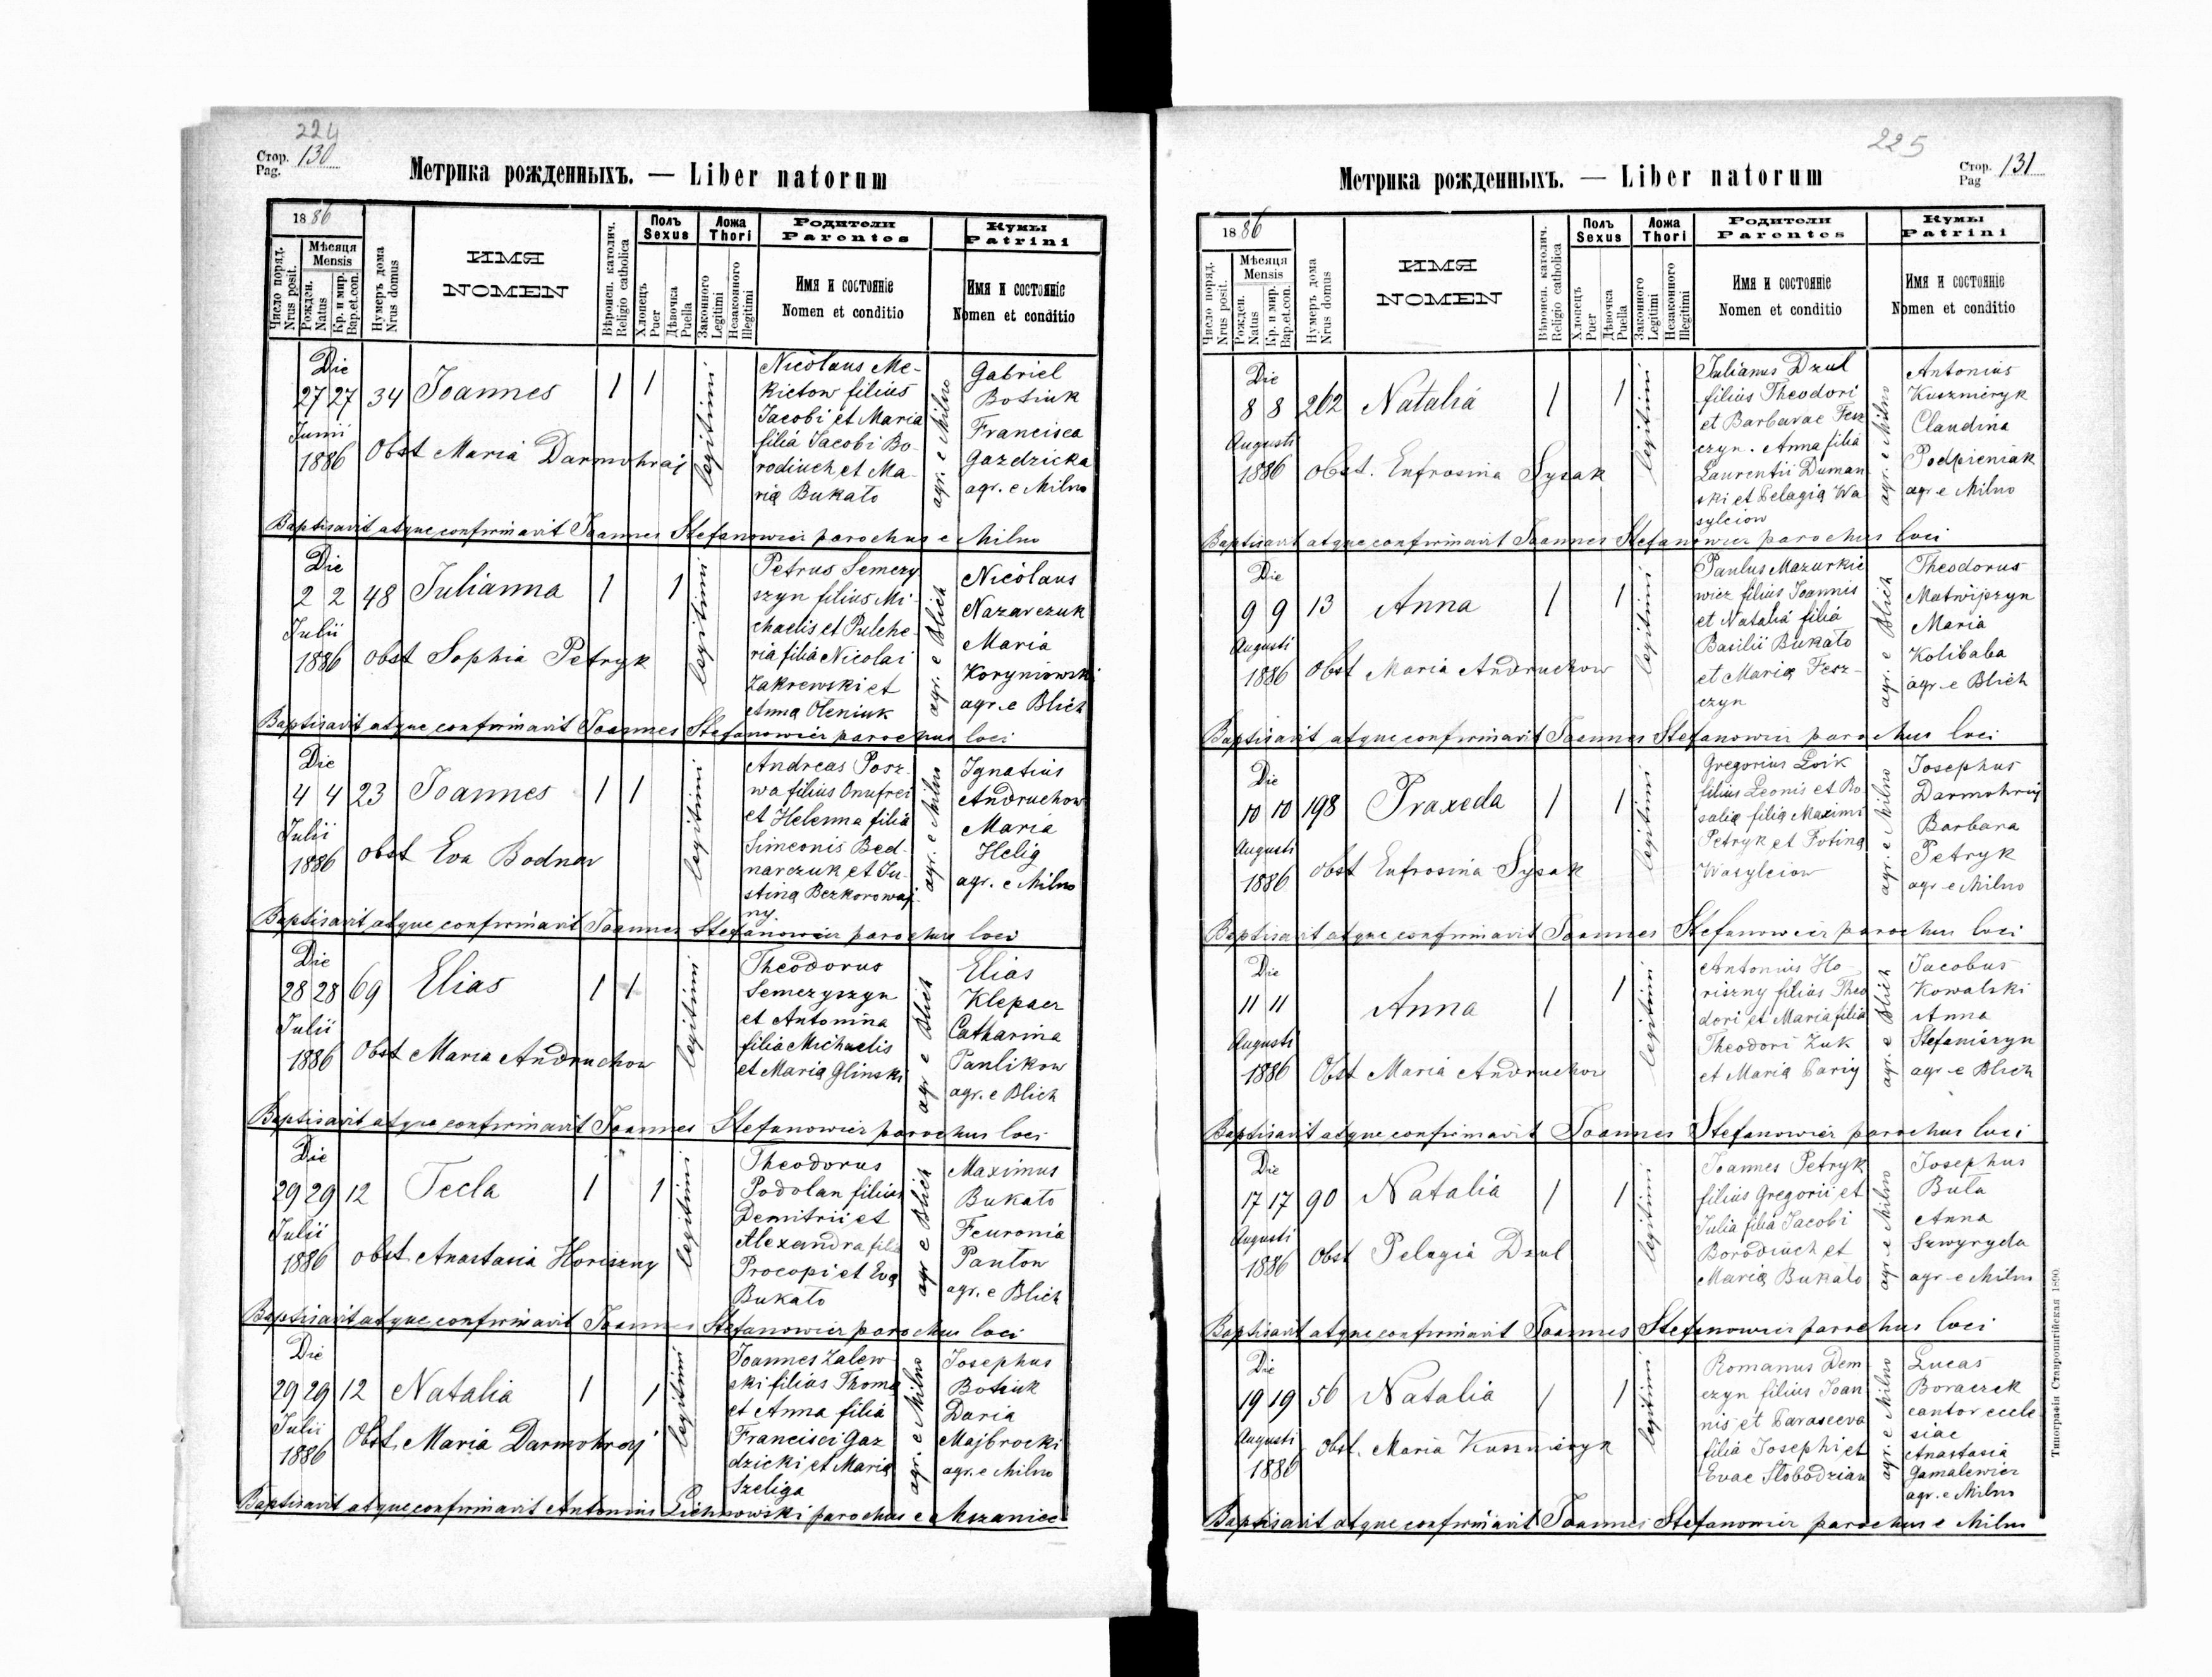 224
Стор. 130
Pag.
Метрика рожденныхъ. — Liber natorum
1886
Число поряд.
Nrus posit.
Мѣсяця
Mensis
Рожден.
Natus
Кр. и мир.
Bap.et.con.
Нумеръ дома
Nrus domus
ИМЯ
NOMEN
Вѣроисп. католич.
Religio catholica
Полъ
Sexus
Хлопець
Puer
Дѣвочка
Puella
Ложа
Thori
Законного
Legitimi
Незаконного
Illegitimi
Родители
Parentes
Имя и состояніе
Nomen et conditio
Кумы
Patrini
Имя и состояніе
Nomen et conditio
Die
27 27 34 Joannes 1 1
Junii
1886 Obst Maria Darmohraj
legitimi
Nicolaus Me-
kietow filius
Jacobi et Maria
filia Jacobi Bo-
rodiuch et Ma-
ria Bukato
agr. e Milno
Gabriel
Botiuk
Francisca
Gazdzicka
agr. e Milno
Baptisavit atque confirmavit Joannes Stefanowicz parochus e Milno
Die
2 2 48 Julianna 1 1
Julii
1886 obst Sophia Petryk
legitimi
Petrus Semczy
szyn filius Mi-
chaelis et Pulche-
ria filia Nicolai
Zakrewski et
Anna Oleniuk
agr. e Blich
Nicolaus
Nazarczuk
Maria
Koryniowski
agr. e Blich
Baptisavit atque confirmavit Joannes Stefanowicz parochus loci
Die
4 4 23 Joannes 1 1
Julii
1886 obst Eva Bodnar
legitimi
Andreas Posz-
wa filius Onufrei
et Helenna filia
Simeonis Bed-
narczuk et Ju-
stina Bezkorowaj-
ny.
agr. e Milno
Ignatius
Andruchow
Maria
Helig
agr. e Milno
Baptisavit atque confirmavit Joannes Stefanowicz parochus loci
Die
28 28 69 Elias 1 1
Julii
1886 Obst Maria Andruchow
legitimi
Theodorus
Semczyszyn
et Antonina
filia Michaelis
et Maria Glinski
agr e Blich
Elias
Klepacz
Catharina
Pawlikow
agr. e Blich
Baptisavit atque confirmavit Joannes Stefanowicz parochus loci
Die
29 29 12 Tecla 1 1
Julii
1886 obst Anastasia Horiszny
legitimi
Theodorus
Podolan filius
Demitrii et
Alexandra filia
Procopi et Eva
Bukato
agr e Blich
Maximus
Bukato
Feuronia
Panton
agr. e Blich
Baptisavit atque confirmavit Joannes Stefanowicz parochus loci
Die
29 29 12 Natalia 1 1
Julii
1886 Obst. Maria Darmohraj
legitimi
Joannes Zalew-
ski filius Thoma
et Anna filia
Francisci Gaz
dzicki et Maria
Szeliga
agr. e Milno
Josephus
Botiuk
Daria
Majbrocki
agr. e Milno
Baptisavit atque confirmavit Antonius Lichnowski parochus e Mszaniec
225
Стор. 131
Pag
Метрика рожденныхъ. — Liber natorum
1886
Число поряд.
Nrus posit.
Мѣсяця
Mensis
Рожден.
Natus
Кр. и мир.
Bap.et.con.
Нумеръ дома
Nrus domus
ИМЯ
NOMEN
Вѣроисп. католич.
Religio catholica
Полъ
Sexus
Хлопець
Puer
Дѣвочка
Puella
Ложа
Thori
Законного
Legitimi
Незаконного
Illegitimi
Родители
Parentes
Имя и состояніе
Nomen et conditio
Кумы
Patrini
Имя и состояніе
Nomen et conditio
Die
8 8 262 Natalia 1 1
Augusti
1886 obst. Eufrosina Sysak
legitimi
Julianus Dzul
filius Theodori
et Barbarae Fesz
czyn. Anna filia
Laurentii Duman
ski et Pelagia Wa
sylciow
agr. e Milno
Antonius
Kuszmeryk
Claudina
Podpieniak
agr e Milno
Baptisavit atque confirmavit Joannes Stefanowicz parochus loci
Die
9 9 13 Anna 1 1
Augusti
1886 Obst Maria Andruchow
legitimi
Paulus Mazurkie
wicz filius Joannis
et Natalia filia
Basilii Bukato
et Maria Fesz-
czyn
agr. e Blich
Theodorus
Matwijszyn
Maria
Kolibaba
agr e Blich
Baptisavit atque confirmavit Joannes Stefanowicz parochus loci
Die
10 10 198 Praxeda 1 1
Augusti
1886 obst Eufrosina Sysak
legitimi
Gregorius Loik
filius Leonis et Ro
salia filia Maximi
Petryk et Fotina
Wasylciow
agr. e Milno
Josephus
Darmohraj
Barbara
Petryk
agr e Milno
Baptisavit atque confirmavit Joannes Stefanowicz parochus loci
Die
11 11 Anna 1 1
Augusti
1886 Obst Maria Andruchow
legitimi
Antonius Ho-
riszny filius Theo
dori et Maria filia
Theodori Zuk
et Maria Parij
agr. e Blich
Jacobus
Kowalski
Anna
Stefaniszyn
agr e Blich
Baptisavit atque confirmavit Joannes Stefanowicz parochus loci
Die
17 17 90 Natalia 1 1
Augusti
1886 Obst Pelagia Dzul
legitimi
Joannes Petryk
filius Gregorii et
Julia filia Jacobi
Borodiuch et
Maria Bukato
agr e Milno
Josephus
Buła
Anna
Szwyryda
agr e Milno
Baptisavit atque confirmavit Joannes Stefanowicz parochus loci
Die
19 19 56 Natalia 1 1
Augusti
1886 obst. Maria Kuszmeryk
legitimi
Romanus Dem
czyn filius Joan
nis et Parasceva
filia Josephi et
Evae Slobodzian
agr. e Milno
Lucas
Boraczek
cantor eccle
siae
Anastasia
Gamalewicz
agr. e Milno
Baptisavit atque confirmavit Joannes Stefanowicz parochus e Milno
Типографія Ставропигійская 1890.